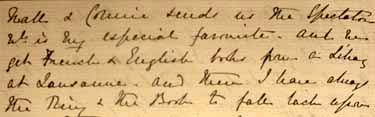 & Connie sends us the Spectator
wh. is my especial favourite. and we
get French & English books from a Library
at Lausanne. and then I have always
the Ring & the Book to fall back upon